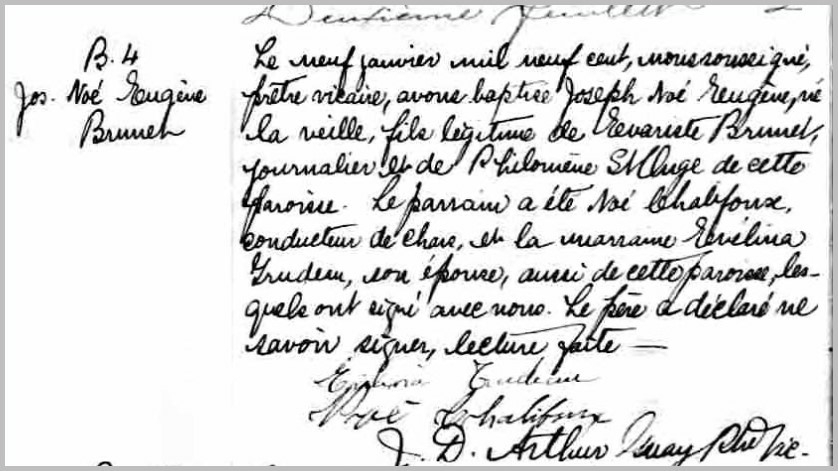 Deuxième feuillet
B. 4
Jos. Noé Eugène
Brunet
Le neuf janvier mil neuf cent, nous soussigné,
prêtre vicaire, avons baptisé Joseph Noé Eugène, né
la veille, fils légitime de Evariste Brunet,
journalier et de Philomène St Onge de cette
paroisse. Le parrain a été Noé Chalifoux,
conducteur de chars, et la marraine Evélina
Trudeau, son épouse, aussi de cette paroisse, les-
quels ont signé avec nous. Le père a déclaré ne
savoir signer, lecture faite —
Trudeau
Noé Chalifoux
J. D. Arthur Ptre Vic.